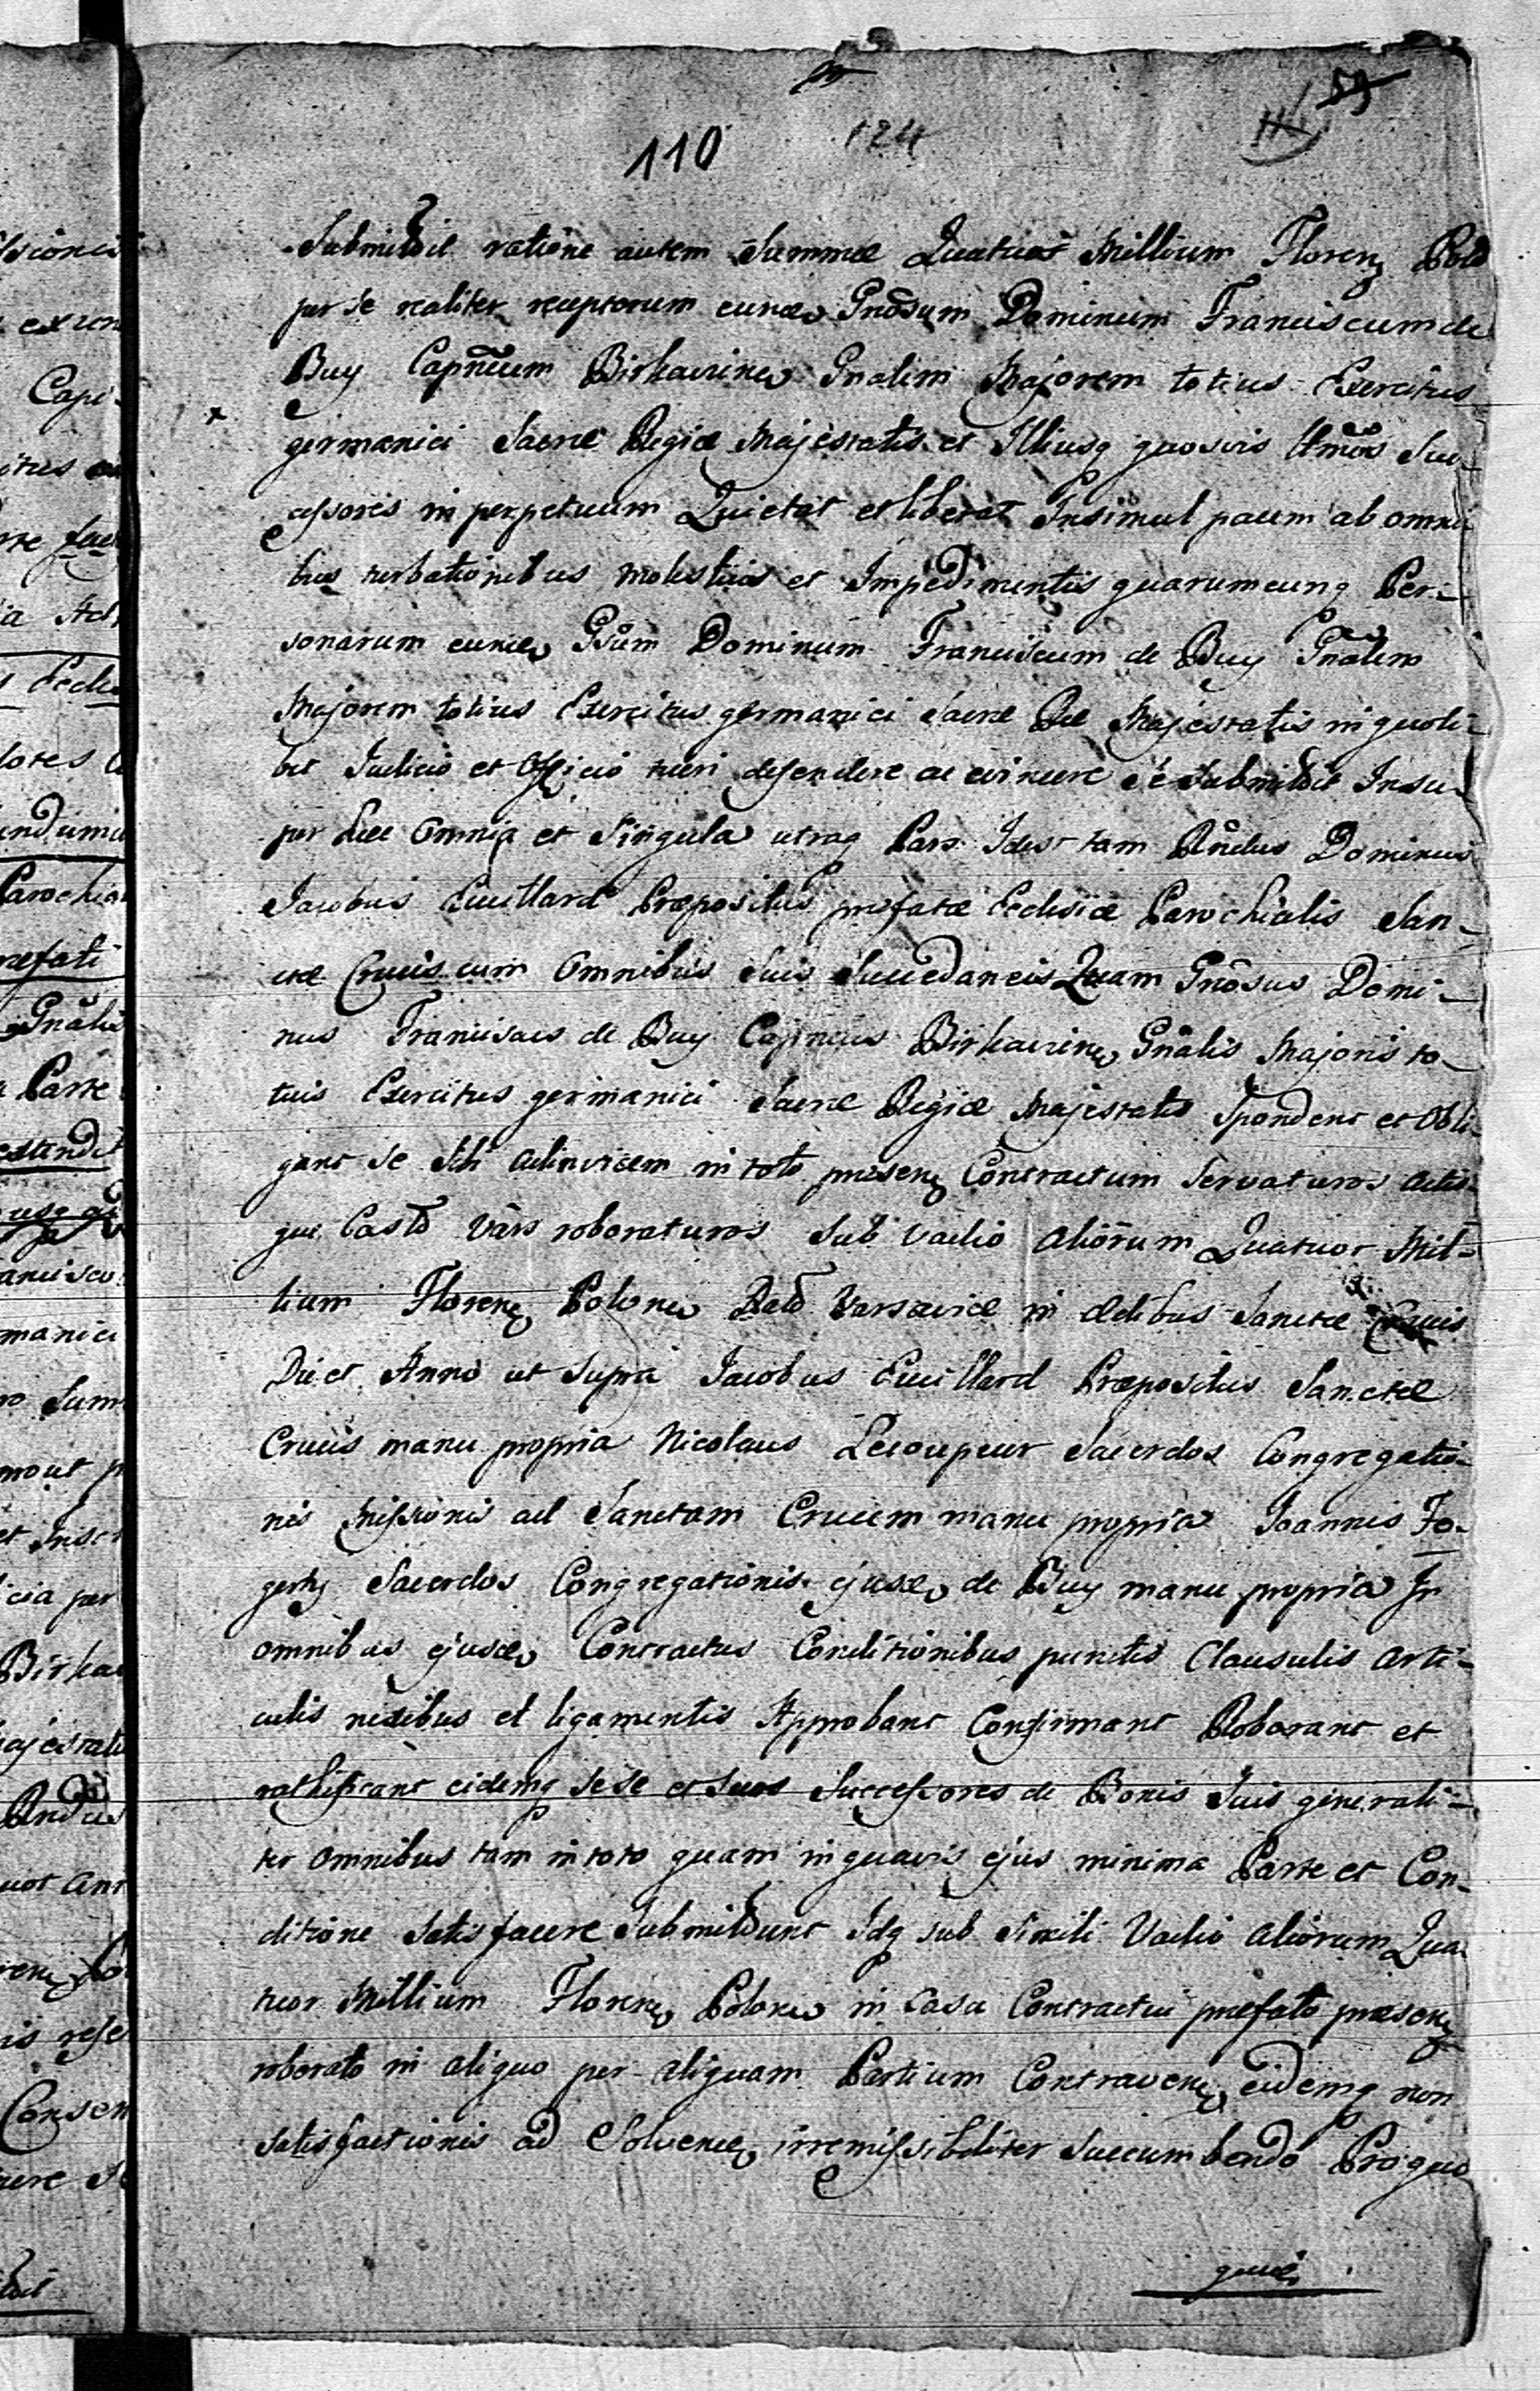 110 124 59
Submittit ratione autem Summæ Quatuor Millium Floren Polo
per se realiter receptorum eund Gnosum Dominum Franciscum de
Buy Capneum Birkavien Gnalem Majorem totius Exercitus
germanici Sacræ Regiæ Majestatis et Illiusq quosvis Ltmos Suc-
cessores in perpetuum Quietat et liberat Insimul paum ab omni-
bus turbationibus molestiis et Impedimentis quarumcunq Per-
sonarum eund Gsum Dominum Franciscum de Buy Gnalem
Majorem totius Exercitus germanici Sacræ Ræ Majestatis in quoli-
bet Judicio et Officio tueri defendere ac evincere se submittit Insu-
per hæc Omnia et Singula utraq Pars Idest tam Rndus Dominus
Jacobus Cuillard Præpositus præfatæ Ecclesiæ Parochialis San-
ctæ Crucis cum Omnibus Suis Succedaneis Quam Gnosus Domi-
nus Franciscus de Buy Capneus Birkavien Gnalis Majoris to-
tius Exercitus germanici Sacræ Regiæ Majestatis Spondent et Obli-
gant se Sibi adinvicem in toto præsen Contractum Servaturos actis-
que Castr Vars roboraturos Sub Vadio aliorum Quatuor Mil-
lium Floren Polon Dato Varsaviæ in ædibus Sanctæ Crucis
Die et Anno ut Supra Jacobus Cuillard Præpositus Sanctæ
Crucis manu propria Nicolaus Lecoupeur Sacerdos Congregatio-
nis Missionis ad Sanctam Crucem manu propria Joannis Fo-
gerty Sacerdos Congregationis ejusd de Buy manu propria In
omnibus ejusd Contractus Conditionibus punctis Clausulis arti-
culis nexibus et ligamentis Approbant Confirmant Roborant et
rathificant eidemq sese et Suos Successores de Bonis Suis generali-
ter omnibus tam in toto quam in quavis ejus minima Parte et Con-
ditione Satisfacere Submittunt Idq sub simili Vadio aliorum Qua-
tuor Millium Floren Polon in Casu Contractui præfato præsen
roborato in aliquo per aliquam Partium Contraven eidemq non
satisfactionis ad Solvend irremissibiliter Succumbendo Pro quo